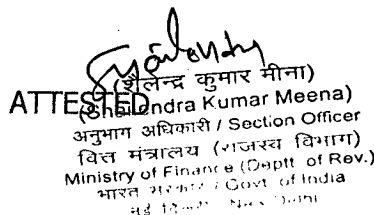 (शैलेन्द्र कुमार मीना)
ATTESTED
(Shailendra Kumar Meena)
अनुभाग अधिकारी / Section Officer
वित्त मंत्रालय (राजस्व विभाग)
Ministry of Finance (Deptt. of Rev.)
भारत सरकार / Govt. of India
नई दिल्ली / New Delhi